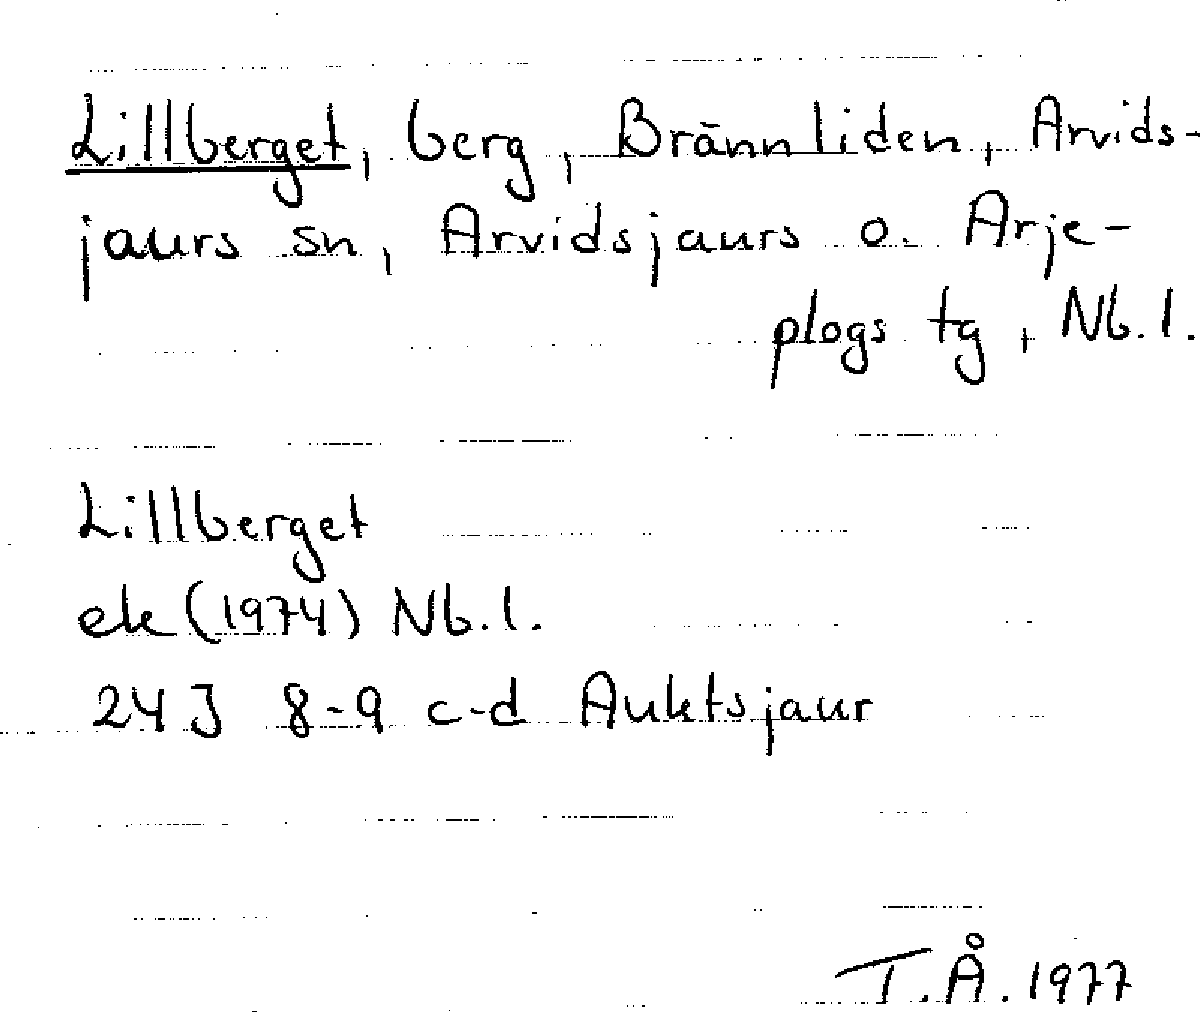 Lillberget, berg, Brännliden, Arvids-
jaurs sn, Arvidsjaurs o. Arje-
plogs tg, Nb.l.
Lillberget
ek (1974) Nb.l.
24J 8-9 c-d Auktsjaur
T.Å. 1977